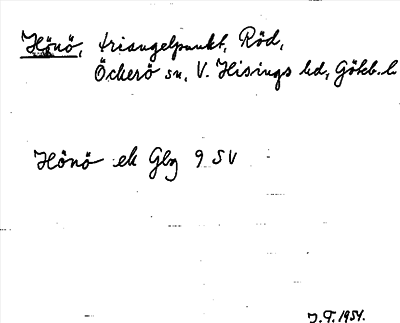 Hönö, triangelpunkt, Röd,
Öckerö sn, V. Hisings hd, Göteb. l.
Hönö ek Gbg 9 SV
J. T. 1954.